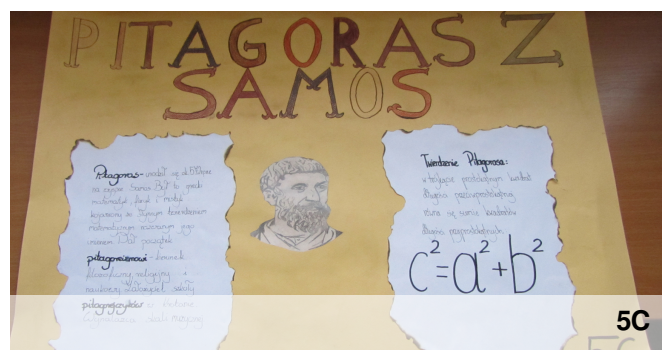 PITAGORAS Z
SAMOS
Pitagoras - urodził się ok
na wyspie Samos Był to grecki
matematyk, filozof i mistyk
kojarzony ze słynnym twierdzeniem
matematycznym nazwanym jego
imieniem Dał początek
pitagoreizmowi - kierunek
religijny i
szkoły
pitagorejczyków w
Twierdzenie Pitagorasa:
w trójkącie prostokątnym kwadrat
długości przeciwprostokątnej
równa się sumie kwadratów
długości przyprostokątnych.
c²=a²+b²
5C